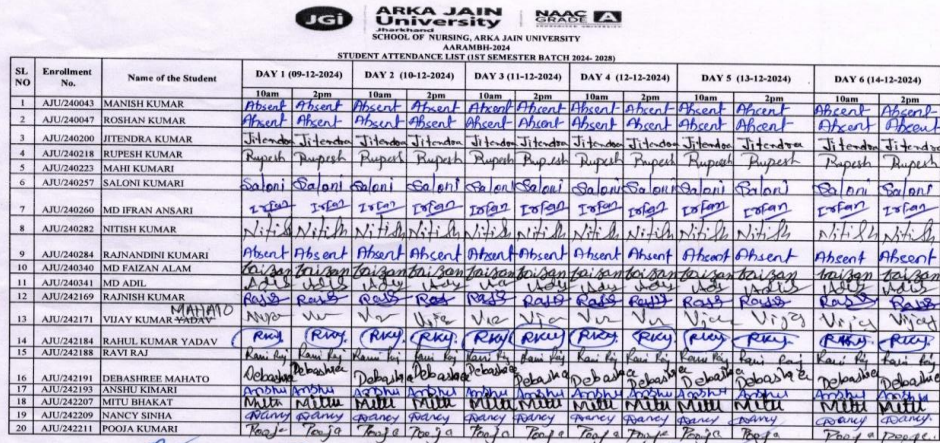 JGi ARKA JAIN University Jharkhand NAAC GRADE A
SCHOOL OF NURSING, ARKA JAIN UNIVERSITY
AARAMBH-2024
STUDENT ATTENDANCE LIST (1ST SEMESTER BATCH 2024- 2028)
SL NO Enrollment No. Name of the Student DAY 1 (09-12-2024) DAY 2 (10-12-2024) DAY 3 (11-12-2024) DAY 4 (12-12-2024) DAY 5 (13-12-2024) DAY 6 (14-12-2024)
10am 2pm 10am 2pm 10am 2pm 10am 2pm 10am 2pm 10am 2pm
1 AJU/240043 MANISH KUMAR Absent Absent Absent Absent Absent Absent Absent Absent Absent Absent Absent Absent
2 AJU/240047 ROSHAN KUMAR Absent Absent Absent Absent Absent Absent Absent Absent Absent Absent Absent Absent
3 AJU/240200 JITENDRA KUMAR Jitendra Jitendra Jitendra Jitendra Jitendra Jitendra Jitendra Jitendra Jitendra Jitendra Jitendra Jitendra
4 AJU/240218 RUPESH KUMAR Rupesh Rupesh Rupesh Rupesh Rupesh Rupesh Rupesh Rupesh Rupesh Rupesh Rupesh Rupesh
5 AJU/240223 MAHI KUMARI
6 AJU/240257 SALONI KUMARI Saloni Saloni Saloni Saloni Saloni Saloni Saloni Saloni Saloni Saloni Saloni Saloni
7 AJU/240260 MD IFRAN ANSARI Irfan Irfan Irfan Irfan Irfan Irfan Irfan Irfan Irfan Irfan Irfan Irfan
8 AJU/240282 NITISH KUMAR Nitish Nitish Nitish Nitish Nitish Nitish Nitish Nitish Nitish Nitish Nitish Nitish
9 AJU/240284 RAJNANDINI KUMARI Absent Absent Absent Absent Absent Absent Absent Absent Absent Absent Absent Absent
10 AJU/240340 MD FAIZAN ALAM faizan faizan faizan faizan faizan faizan faizan faizan faizan faizan faizan faizan
11 AJU/240341 MD ADIL
12 AJU/242169 RAJNISH KUMAR
MAHATO
13 AJU/242171 VIJAY KUMAR YADAV
14 AJU/242184 RAHUL KUMAR YADAV RKY RKY RKY RKY RKY RKY RKY RKY RKY RKY RKY RKY
15 AJU/242188 RAVI RAJ Ravi Raj Ravi Raj Ravi Raj Ravi Raj Ravi Raj Ravi Raj Ravi Raj Ravi Raj Ravi Raj Ravi Raj Ravi Raj Ravi Raj
16 AJU/242191 DEBASHREE MAHATO Debashree Debashree Debashree Debashree Debashree Debashree Debashree Debashree Debashree Debashree Debashree Debashree
17 AJU/242193 ANSHU KIMARI Anshu Anshu Anshu Anshu Anshu Anshu Anshu Anshu Anshu Anshu Anshu Anshu
18 AJU/242207 MITU BHAKAT Mitu Mitu Mitu Mitu Mitu Mitu Mitu Mitu Mitu Mitu Mitu Mitu
19 AJU/242209 NANCY SINHA Nancy Nancy Nancy Nancy Nancy Nancy Nancy Nancy Nancy Nancy Nancy Nancy
20 AJU/242211 POOJA KUMARI Pooja Pooja Pooja Pooja Pooja Pooja Pooja Pooja Pooja Pooja Pooja Pooja